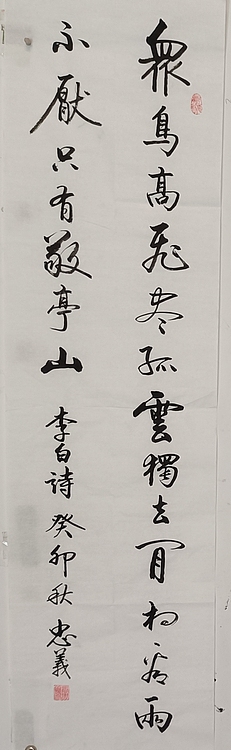 眾鳥高飛盡孤雲獨去閒相看兩
不厭只有敬亭山 李白詩 癸卯秋 忠義